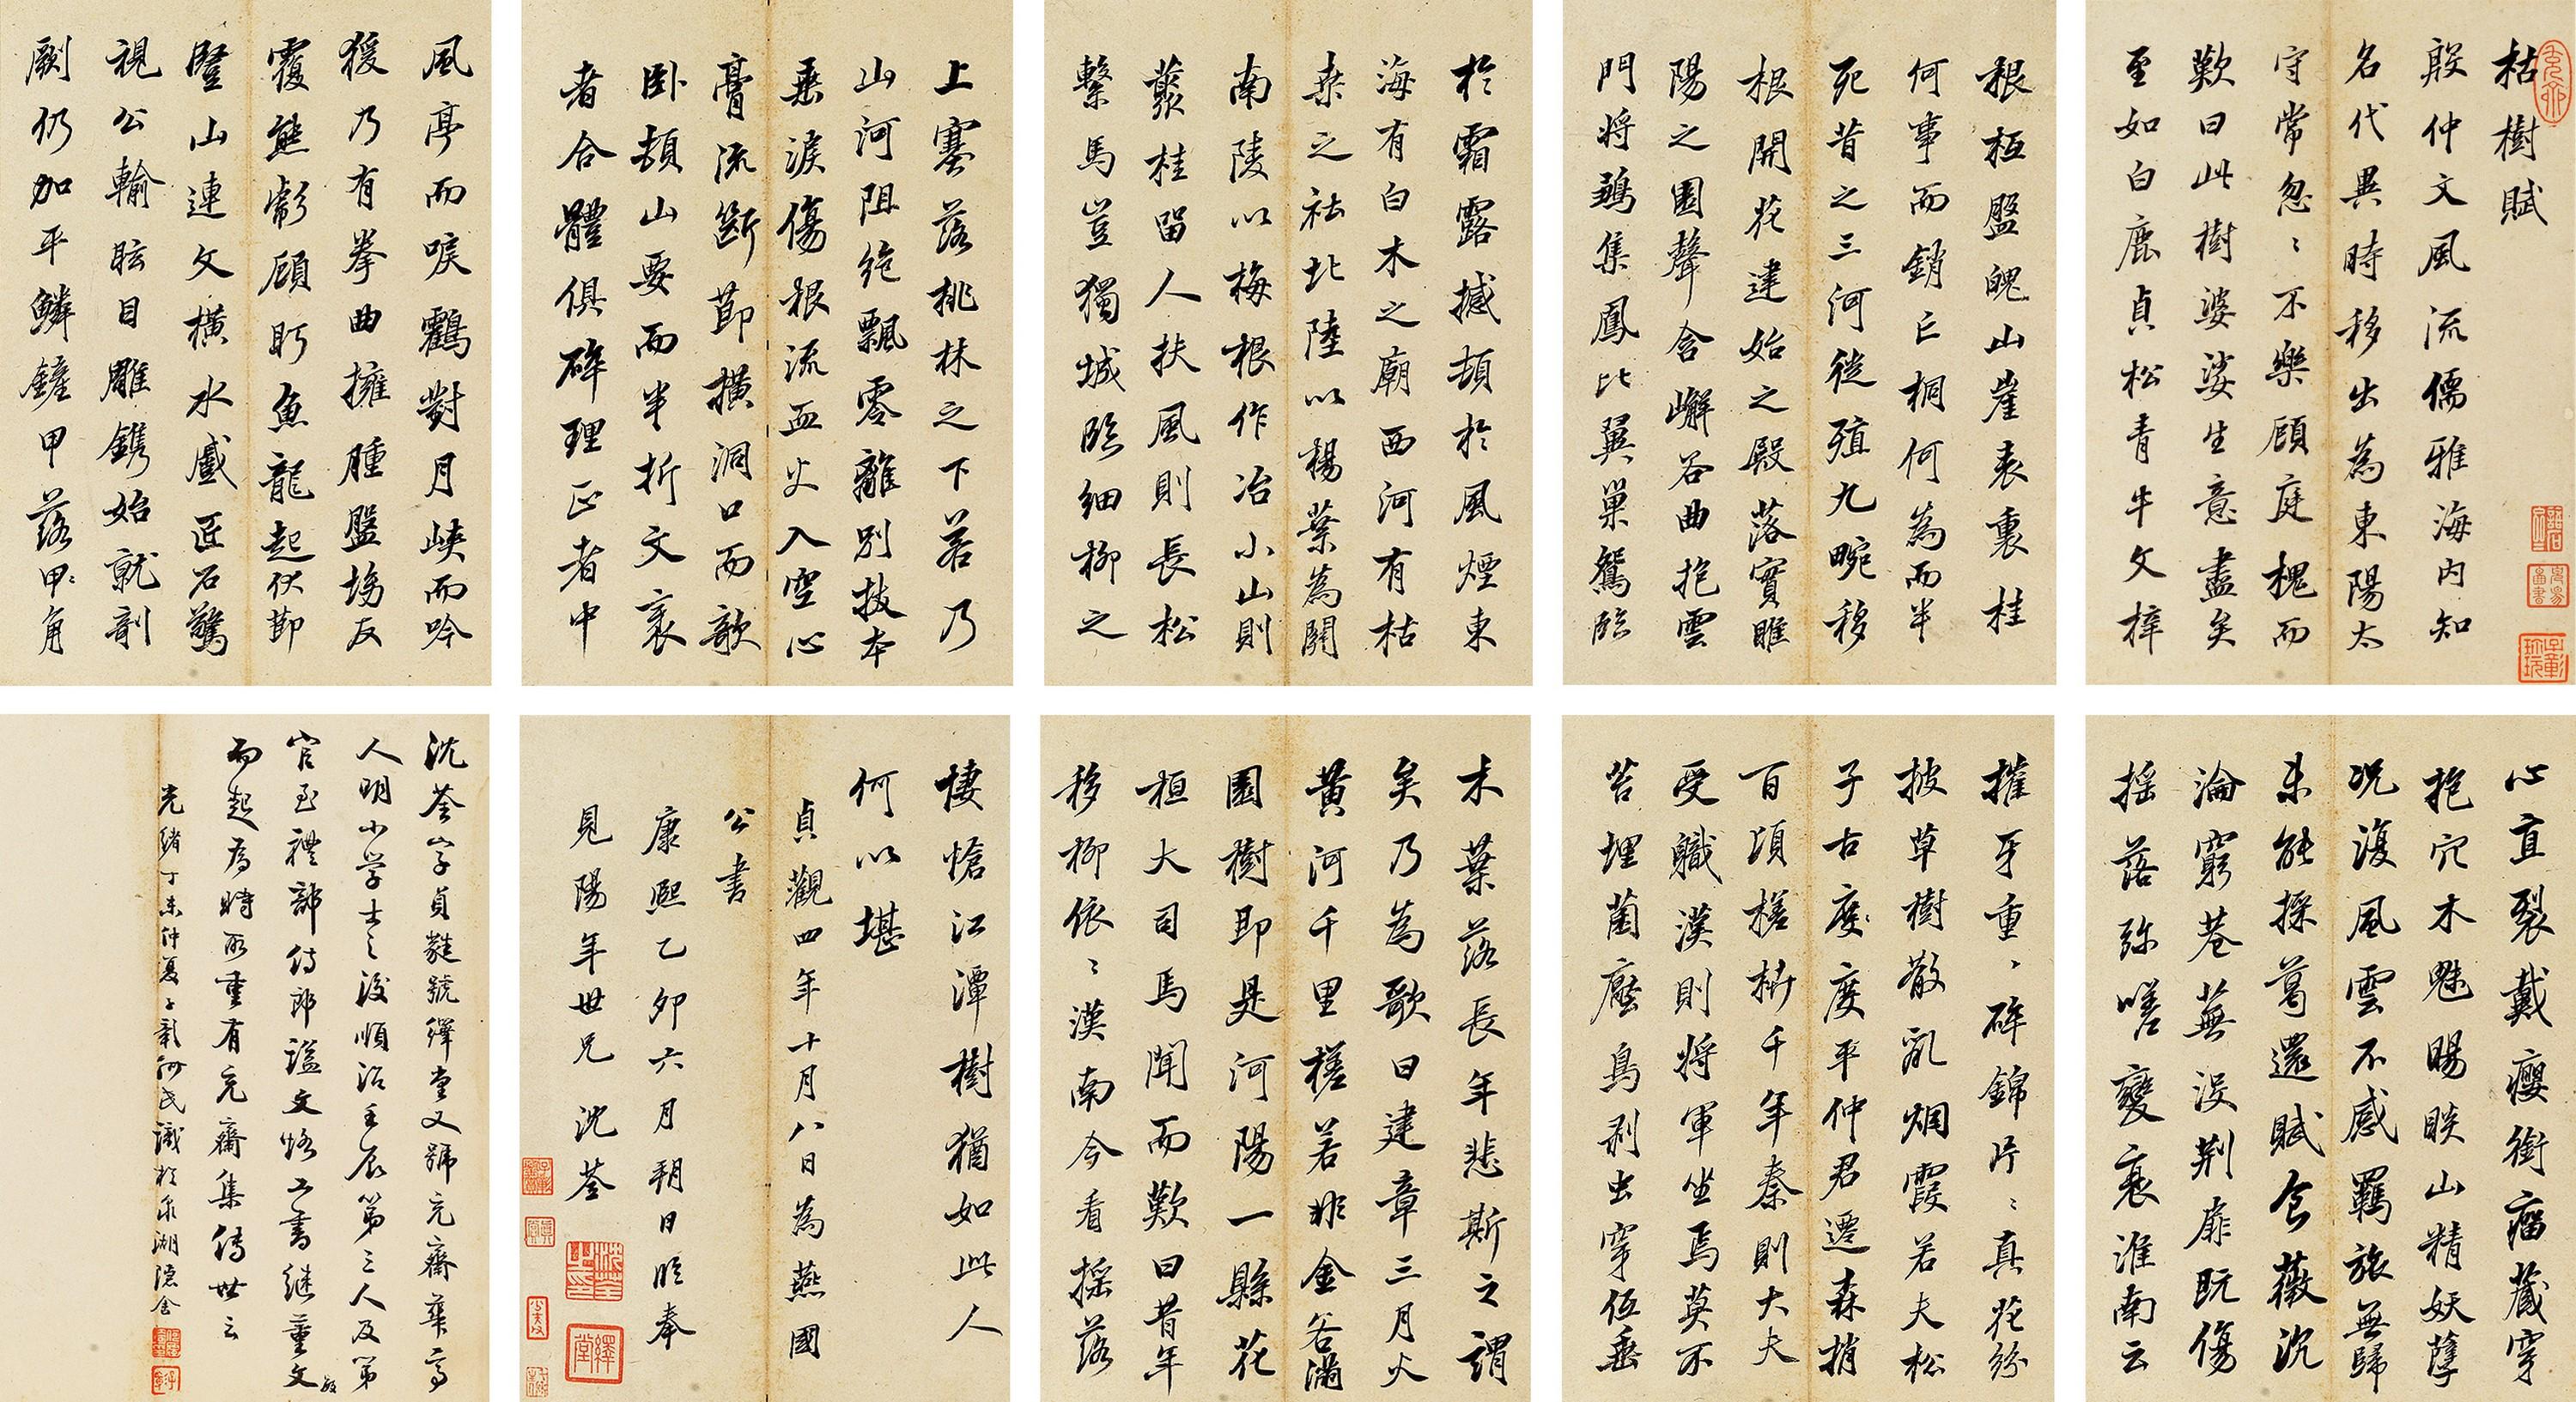 枯樹賦
殷仲文風流儒雅海內知
名代異時移出為東陽太
守常忽〻不樂顧庭槐而
歎曰此樹婆娑生意盡矣
至如白鹿貞松青牛文梓
根柢盤魄山崖表裏桂
何事而銷亡桐何為而半
死昔之三河徙殖九畹移
根開花建始之殿落實睢
陽之園聲含嶰谷曲抱雲
門將鵷集鳳比翼巢鴛臨
於霜露撼頓於風煙東
海有白木之廟西河有枯
桑之社北陸以楊葉為關
南陵以梅根作冶小山則
叢桂留人扶風則長松
繫馬豈獨城臨細柳之
上塞落桃林之下若乃
山河阻絕飄零離別拔本
垂淚傷根流血火入空心
膏流斷節橫洞口而敧
臥頓山要而半折文衺
者合體俱碎理正者中
風亭而唳鶴對月峽而吟
猨乃有拳曲擁腫盤坳反
覆熊彪顧盻魚龍起伏節
豎山連文橫水蹙匠石驚
視公輸眩目雕鐫始就剞
劂仍加平鱗鏟甲落甲〻角
心直裂戴癭銜瘤藏穿
抱穴木魅睗睒山精妖孽
況復風雲不感羈旅無歸
未能採葛還賦食薇沉
淪窮巷蕪沒荆扉既傷
搖落弥嗟變衰淮南云
木葉落長年悲斯之謂
矣乃為歌曰建章三月火
黃河千里槎若非金谷滿
園樹即是河陽一縣花
桓大司馬聞而歎曰昔年
移柳依〻漢南今看搖落
摧牙重〻碎錦片〻真花紛
披草樹散亂烟霞若夫松
子古度〻度平仲君遷森梢
百頃槎枿千年秦則大夫
受職漢則將軍坐焉莫不
苔埋菌壓鳥剥虫穿低垂
悽愴江潭樹猶如此人
何以堪
貞觀四年十月八日為燕國
公書
康熙乙卯六月朔日臨奉
見陽年世兄 沈荃
沈荃字貞蕤號繹堂又號充齋華亭
人明小學士之後順治壬辰第三人及第
官至禮部侍郎謚文恪工書繼董文敏
而起為時所重有充齋集傳世云
光緒丁未仲夏